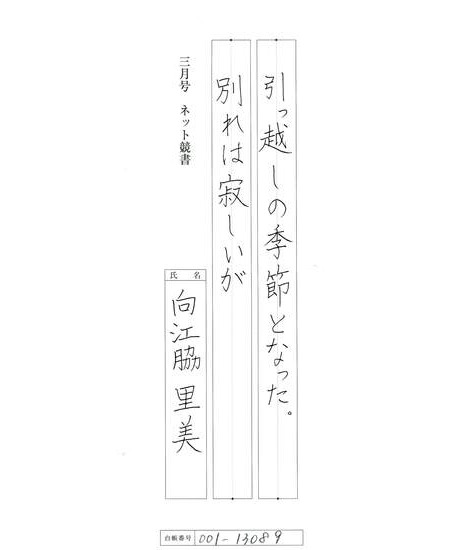 引っ越しの季節となった。
別れは寂しいが
三月号 ネット競書
氏名
向江脇里美
白帳番号 001-13089